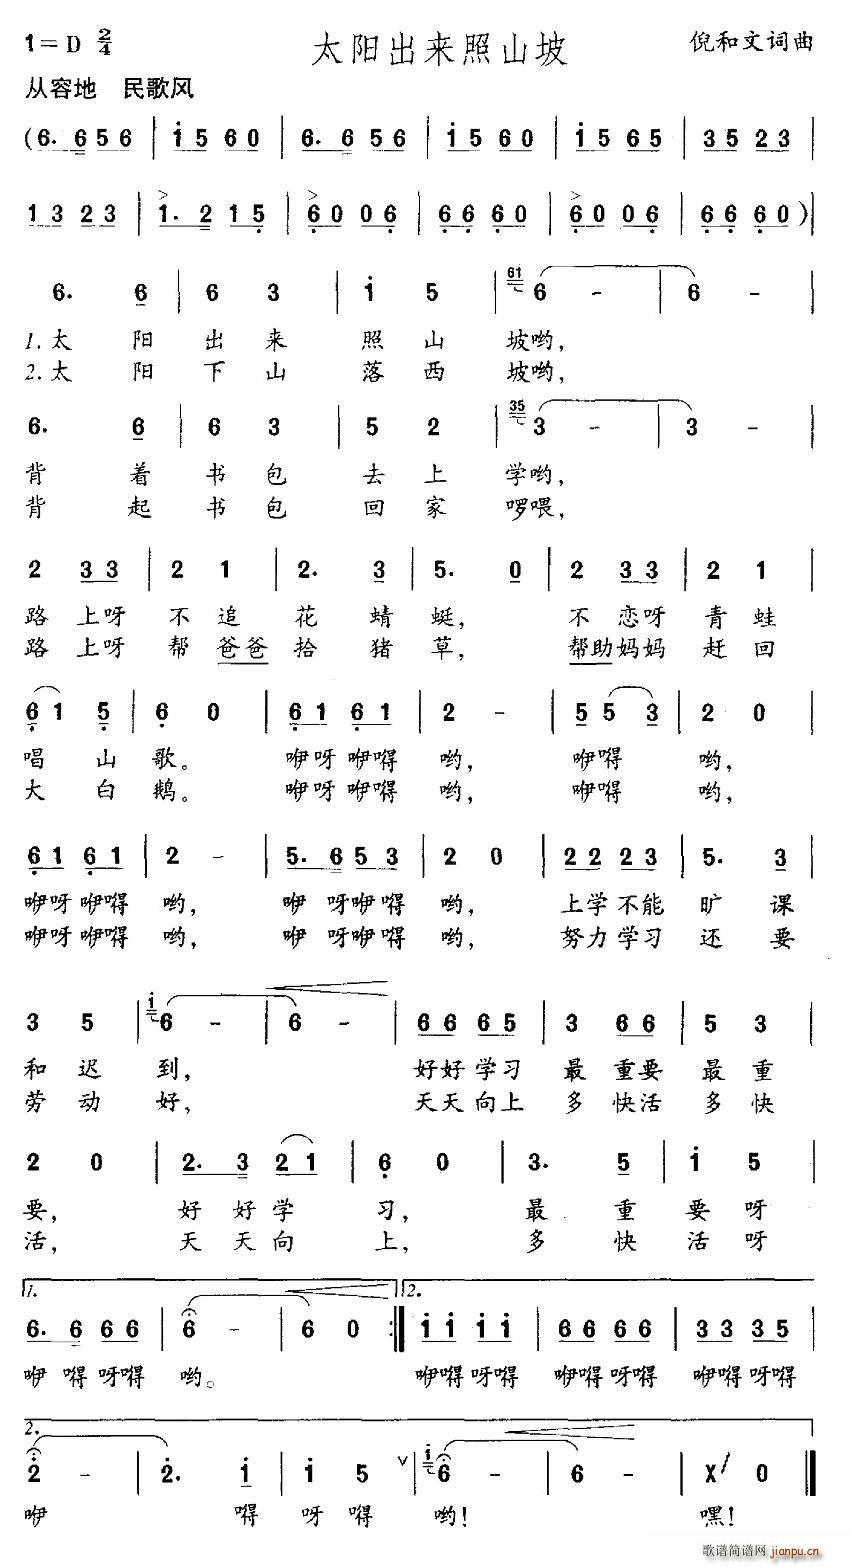 1=D 2/4 太阳出来照山坡 倪和文词曲
从容地 民歌风
(6. 6 5 6 | i 5 6 0 | 6. 6 5 6 | i 5 6 0 | i 5 6 5 | 3 5 2 3 |
1 3 2 3 | 1. 2 1 5 | 6 0 0 6 | 6 6 6 0 | 6 0 0 6 | 6 6 6 0 )|
6. 6 | 6 3 | i 5 | 61 6 - | 6 - |
1.太 阳 出 来 照 山 坡哟,
2.太 阳 下 山 落 西 坡哟,
6. 6 | 6 3 | 5 2 | 35 3 - | 3 - |
背 着 书 包 去 上 学哟,
背 起 书 包 回 家 啰喂,
2 3 3 | 2 1 | 2. 3 | 5. 0 | 2 3 3 | 2 1 |
路 上呀 不 追 花 蜻 蜓, 不 恋呀 青 蛙
路 上呀 帮 爸爸 拾 猪 草, 帮助妈妈 赶 回
6 1 5 | 6 0 | 6 1 6 1 | 2 - | 5 5 3 | 2 0 |
唱 山 歌。 咿呀 咿嘚 哟, 咿嘚 哟,
大 白 鹅。 咿呀 咿嘚 哟, 咿嘚 哟,
6 1 6 1 | 2 - | 5. 6 5 3 | 2 0 | 2 2 2 3 | 5. 3 |
咿呀 咿嘚 哟, 咿 呀咿嘚 哟, 上学 不能 旷 课
咿呀 咿嘚 哟, 咿 呀咿嘚 哟, 努力 学习 还 要
3 5 | i 6 - | 6 - | 6 6 6 5 | 3 6 6 | 5 3 |
和 迟 到, 好好 学习 最 重要 最 重
劳 动 好, 天天 向上 多 快活 多 快
2 0 | 2. 3 2 1 | 6 0 | 3. 5 | i 5 |
要, 好 好 学 习, 最 重 要 呀
活, 天 天 向 上, 多 快 活 呀
1. 2.
6. 6 6 6 | 6 - | 6 0 :| i i i i | 6 6 6 6 | 3 3 3 5 |
咿 嘚 呀嘚 哟。 咿嘚 呀嘚 咿嘚 呀嘚 咿嘚 呀嘚
2.
2 - | 2. i | i 5 ∨ | i 6 - | 6 - | X 0 ‖
咿 嘚 呀 嘚 哟! 嘿!
歌谱简谱网
jianpu.cn